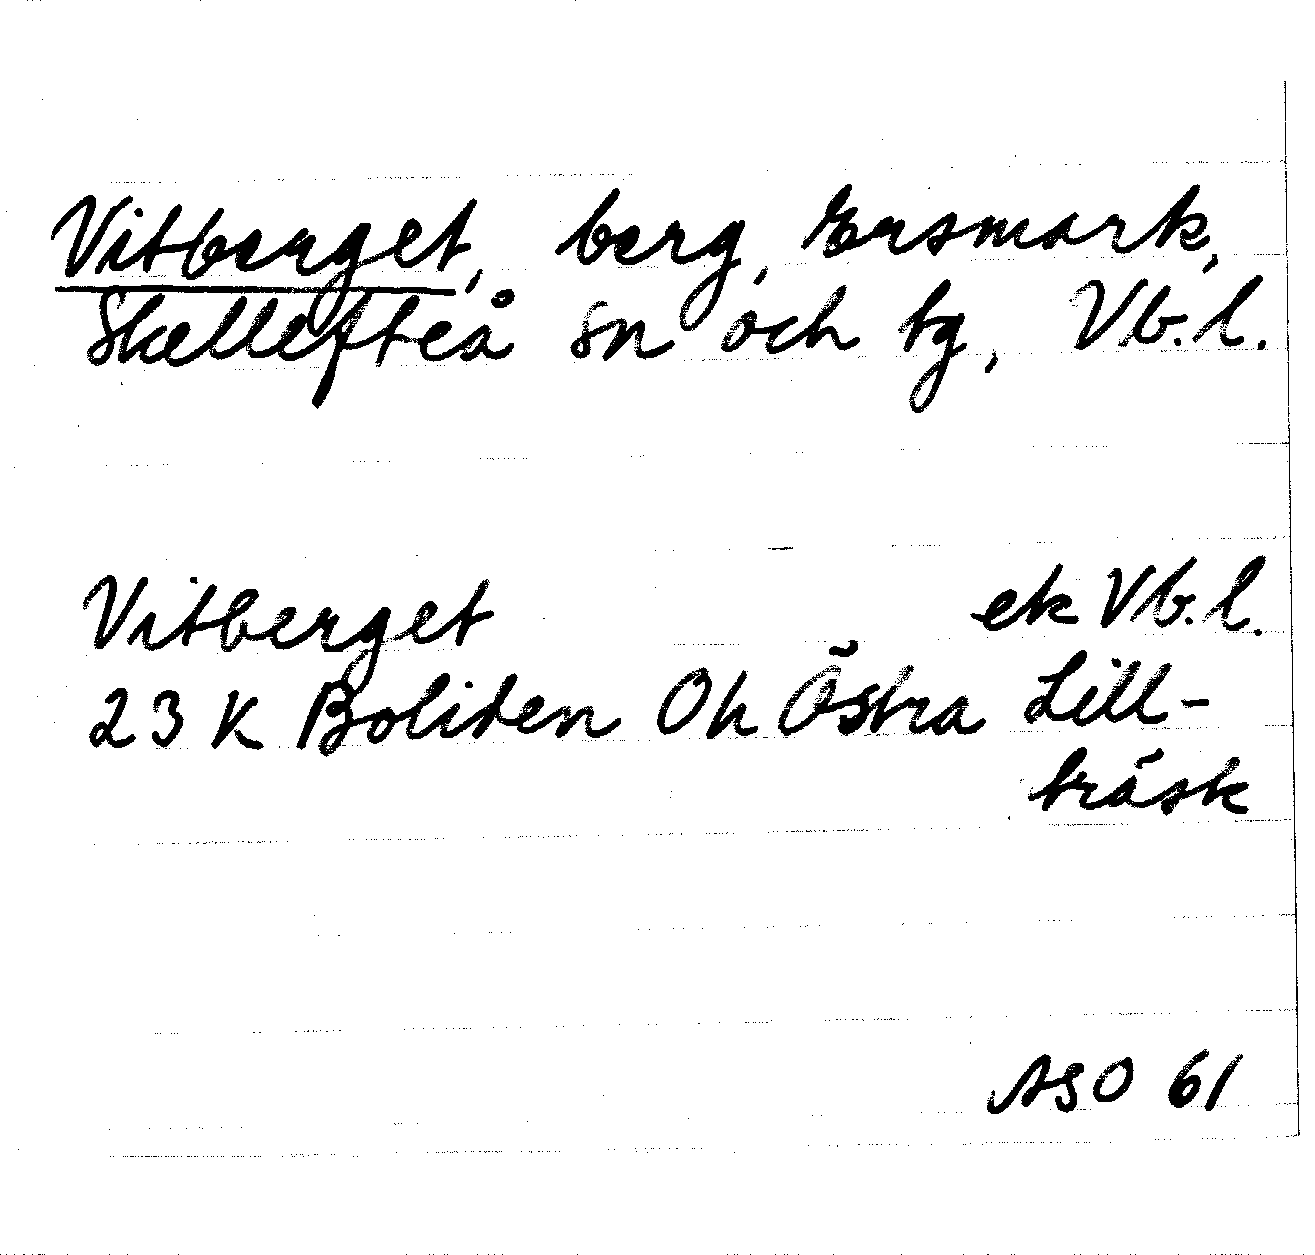 Vitberget, berg, Ersmark,
Skellefteå sn och tg, Vb.l.
Vitberget ek Vb.l.
23 K Boliden Oh Östra Lill-
träsk
ASO 61